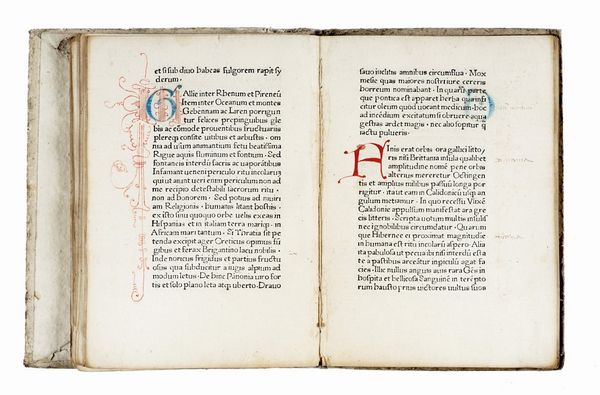 et si sub diuo habeas fulgorem rapit sy
derum·
GAllie inter Rhenum et Pireneū
Item inter Oceanum et montes
Gebennam ac Iuren porrigun
tur felices prepinguibus gle
bis ac cōmode prouentibus fructuariis
plereq; consite uitibus et arbustis· om
nia ad usum animantum fetu beatissima
Rigue aquis fluminum et fontium· Sed
fontaneis interdū sacris ac uaporātibus
Infamant ueneni periculo ritu incolarū
qui ut aiunt uerū enim periculum non ad
me recipio detestabili sacrorum ritu·
non ad honorem· Sed potius ad iniuri
am Religionis· humanis litant hostiis·
ex isto sinu quoquo orbe uelis exeas in
Hispanias et in italiam terra mariq;· in
Africam mari tantum· Si Thracia sit pe
tenda excipit ager Creticus opimus fru
gibus et ferax Brigantino lacu nobilis·
Inde noricus frigidus et partius fructu
osus qua subducitur a iugis alpium ad
modum letus· De hinc Panonia uiro for
tis et solo plano leta atq; uberto· Drauo
sauo inclitis amnibus circumflua· Mox
mesie quas maiores nostri iure cereris
horreum nominabant· In quarū parte
que pontica est apparet herba qua infi
citur oleum quod uocant medicum· hoc
ad incēdium excitatum si obruere aqua
gestias ardet magis· nec alio sopitur q̄
iactu pulueris·
FInis erat orbis ora gallici litto
ris nisi Brittania insula qualibet
amplitudine nomē pene orbis
alterius mereretur Octingen
tis et amplius milibus passuū longa por
rigitur· ita ut eam in Calidonicū usq; an
gulum metiamur· In quo recessu Vlixē
Calidonie appulsum manifestat ara gre
cis litteris· Scripta uotum multis insulis
nec ignobilibus circumdatur· Quarum
que Hibernei ei proximat magnitudie
inhumana est ritu incolarū aspero· Alia
ita pabulosa ut pecua ibi nisi interdū esta
te a pastibus arceātur inpiculū agat fa
cies· Illic nullus anguis auis rara Gēs in
hospita et bellicosa Sanguinē interēpto
rum hausto prius uictores uultus suos